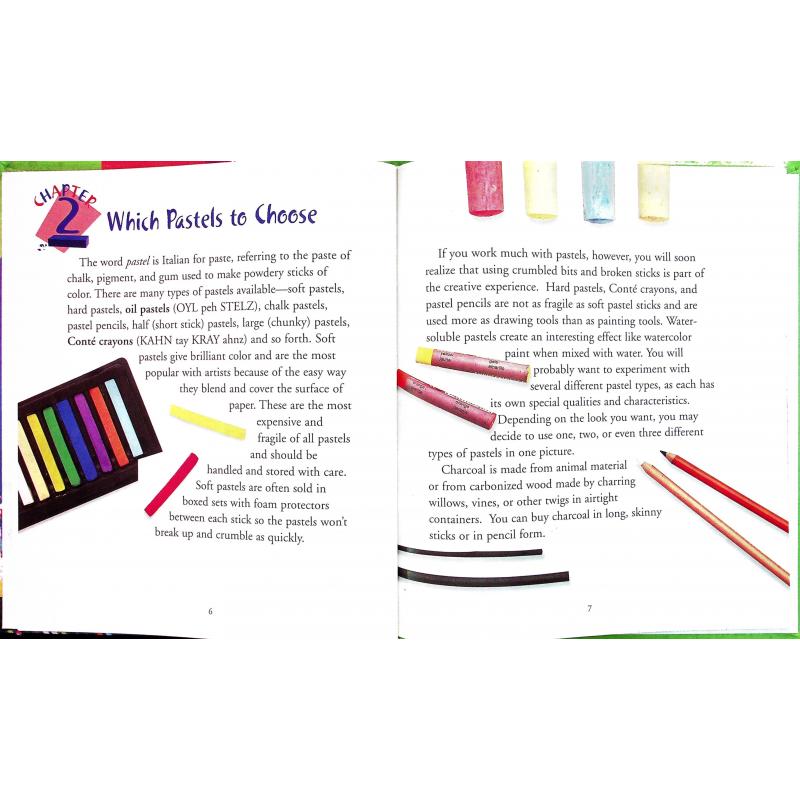 CHAPTER
2 Which Pastels to Choose
The word pastel is Italian for paste, referring to the paste of
chalk, pigment, and gum used to make powdery sticks of
color. There are many types of pastels available—soft pastels,
hard pastels, oil pastels (OYL peh STELZ), chalk pastels,
pastel pencils, half (short stick) pastels, large (chunky) pastels,
Conté crayons (KAHN tay KRAY ahnz) and so forth. Soft
pastels give brilliant color and are the most
popular with artists because of the easy way
they blend and cover the surface of
paper. These are the most
expensive and
fragile of all pastels
and should be
handled and stored with care.
Soft pastels are often sold in
boxed sets with foam protectors
between each stick so the pastels won't
break up and crumble as quickly.
6
If you work much with pastels, however, you will soon
realize that using crumbled bits and broken sticks is part of
the creative experience. Hard pastels, Conté crayons, and
pastel pencils are not as fragile as soft pastel sticks and are
used more as drawing tools than as painting tools. Water-
soluble pastels create an interesting effect like watercolor
paint when mixed with water. You will
probably want to experiment with
several different pastel types, as each has
its own special qualities and characteristics.
Depending on the look you want, you may
decide to use one, two, or even three different
types of pastels in one picture.
Charcoal is made from animal material
or from carbonized wood made by charring
willows, vines, or other twigs in airtight
containers. You can buy charcoal in long, skinny
sticks or in pencil form.
7